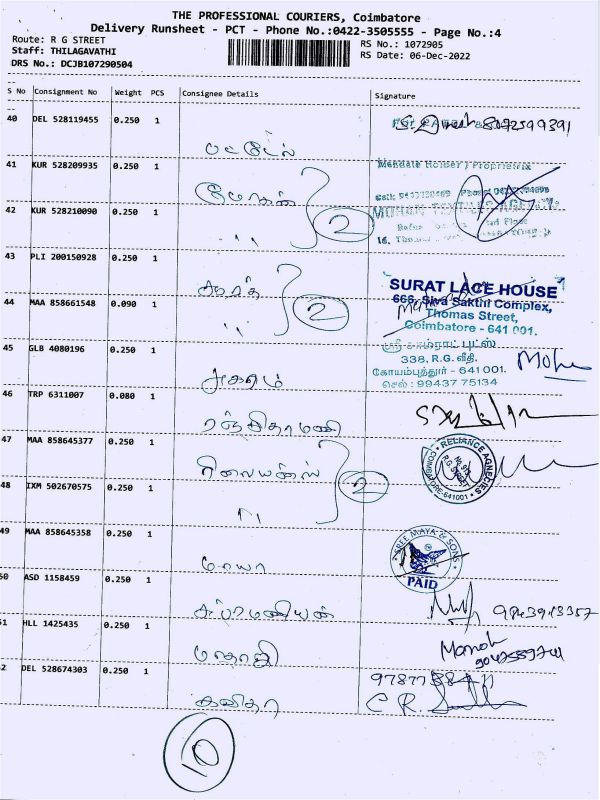 THE PROFESSIONAL COURIERS, Coimbatore
Delivery Runsheet - PCT - Phone No.:0422-3505555 - Page No.:4
Route: R G STREET
Staff: THILAGAVATHI
DRS No.: DCJB107290504
RS No.: 1072905
RS Date: 06-Dec-2022
S No Consignment No Weight PCS Consignee Details Signature
40 DEL 528119455 0.250 1
பட்டேல்
41 KUR 528209935 0.250 1
மோகன்
Mandate Holder / Proprietrix
42 KUR 528210090 0.250 1
,,
2
MOHAN TEXTILES AGENCY
43 PLI 200150928 0.250 1
சூரத்
SURAT LACE HOUSE
666, Siva Sakthi Complex,
Thomas Street,
Coimbatore - 641 001.
44 MAA 858661548 0.090 1
,,
2
ஸ்ரீ சாம்ராட் பட்ஸ்
338, R.G. வீதி,
கோயம்புத்தூர் - 641 001.
செல் : 99437 75134
45 GLB 4080196 0.250 1
அகரம்
Mohan
46 TRP 6311007 0.080 1
ரஞ்சிதாமணி
47 MAA 858645377 0.250 1
ரிலையன்ஸ்
RELIANCE AGNECIES
R.G STREET
COIMBATORE-641001
48 IXM 502670575 0.250 1
,,
2
49 MAA 858645358 0.250 1
மாயா
SREE MAYA & SONS
PAID
50 ASD 1158459 0.250 1
சுப்ரமணியன்
9843913357
51 HLL 1425435 0.250 1
பாலாஜி
Manoh
52 DEL 528674303 0.250 1
கவிதா
C R.
10